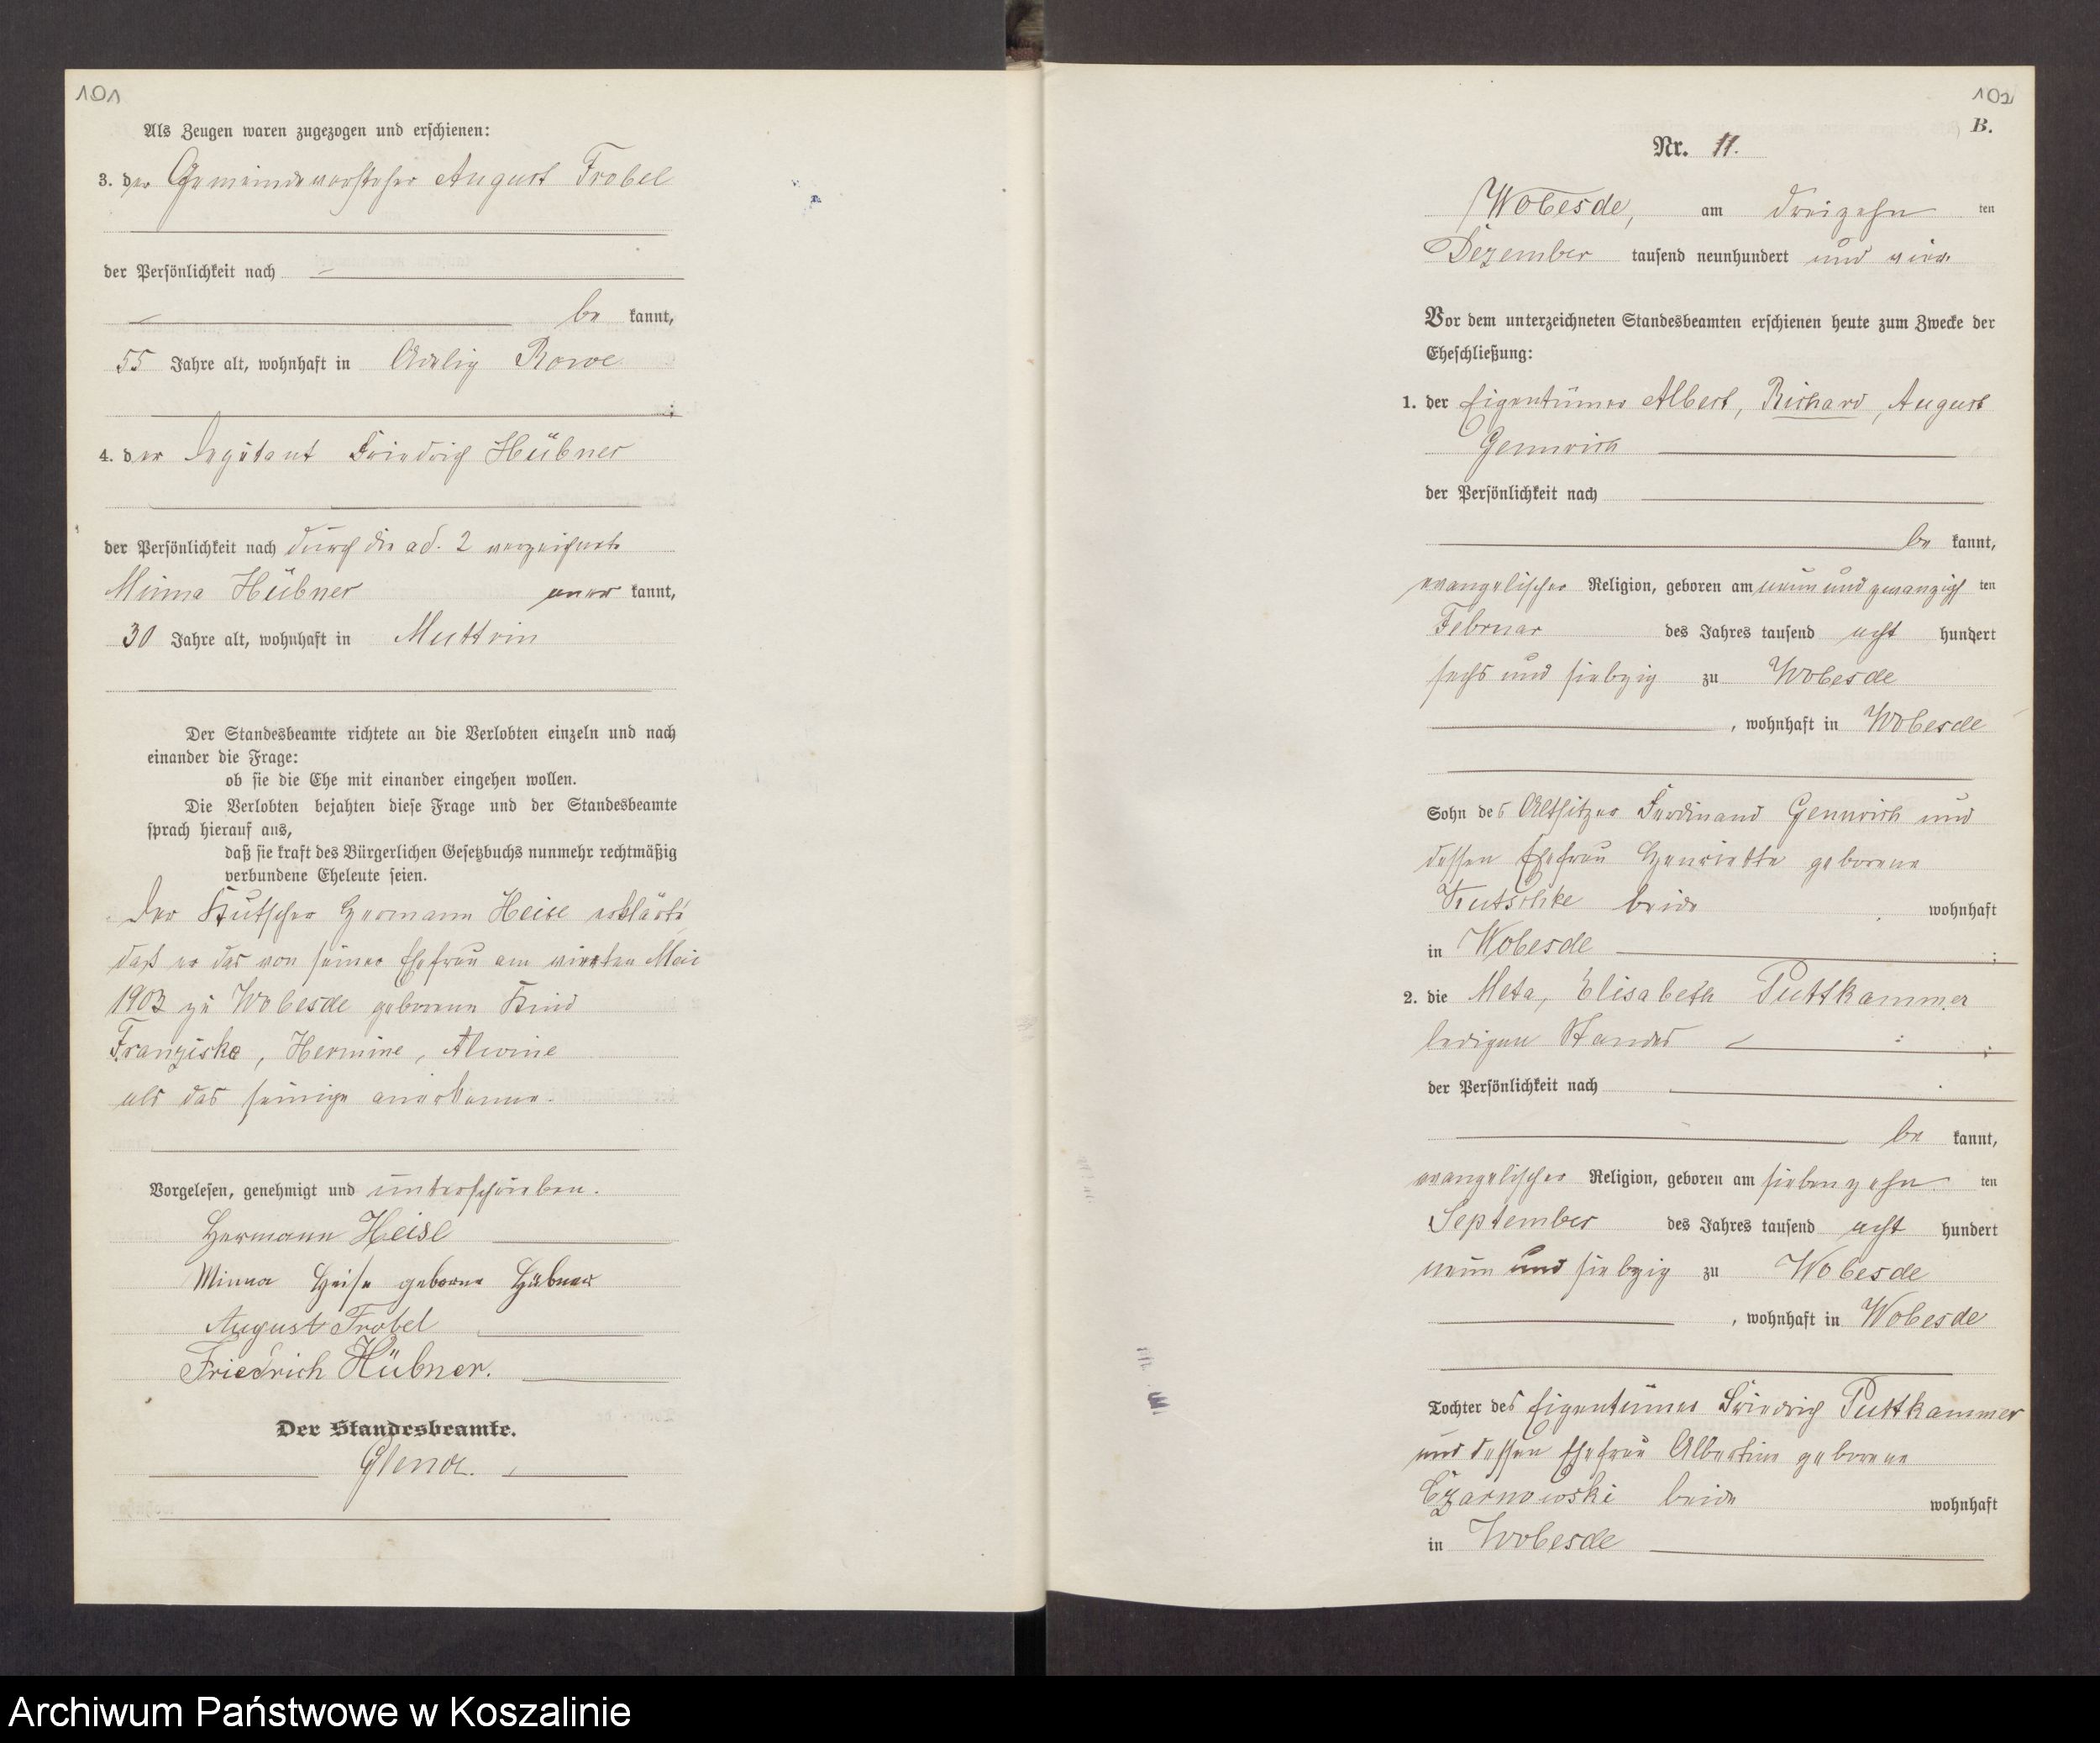 101
Als Zeugen waren zugezogen und erschienen:
3. der Gemeindevorsteher August Frobel
der Persönlichkeit nach
be kannt,
55 Jahre alt, wohnhaft in Adelig Rowe
;
4. der Friedrich Hübner
der Persönlichkeit nach durch die ad. 2 verzeichnete
Minna Hübner aner kannt,
30 Jahre alt, wohnhaft in Muttrin
Der Standesbeamte richtete an die Verlobten einzeln und nach
einander die Frage:
ob sie die Ehe mit einander eingehen wollen.
Die Verlobten bejahten diese Frage und der Standesbeamte
sprach hierauf aus,
daß sie kraft des Bürgerlichen Gesetzbuchs nunmehr rechtmäßig
verbundene Eheleute seien.
Der Kutscher Hermann Heise erklärte
daß er das von seiner Ehefrau am vierten Mai
1903 zu Wobesde geborene Kind
Franziska, Hermine, Alwine
als das seinige anerkenne.
Vorgelesen, genehmigt und unterschrieben.
Hermann Heise
Minna Heise geborne Hübner
August Frobel
Friedrich Hübner.
Der Standesbeamte.
102
B.
Nr. 11.
Wobesde, am dreizehn ten
Dezember tausend neunhundert und vier
Vor dem unterzeichneten Standesbeamten erschienen heute zum Zwecke der
Eheschließung:
1. der Eigentümer Albert, Richard, August
Gennrich
der Persönlichkeit nach
be kannt,
evangelischer Religion, geboren am neun und zwanzig ten
Februar des Jahres tausend acht hundert
sechs und siebzig zu Wobesde
, wohnhaft in Wobesde
Sohn des Altsitzer Ferdinand Gennrich und
dessen Ehefrau Henriette geborene
beide wohnhaft
in Wobesde ;
2. die Meta, Elisabeth Puttkammer
ledigen Standes ;
der Persönlichkeit nach
be kannt,
evangelischer Religion, geboren am siebenzehn ten
September des Jahres tausend acht hundert
neun und siebzig zu Wobesde
, wohnhaft in Wobesde
Tochter des Eigentümer Friedrich Puttkammer
und dessen Ehefrau Albertine geborene
Czarnowski beide wohnhaft
in Wobesde
Archiwum Państwowe w Koszalinie